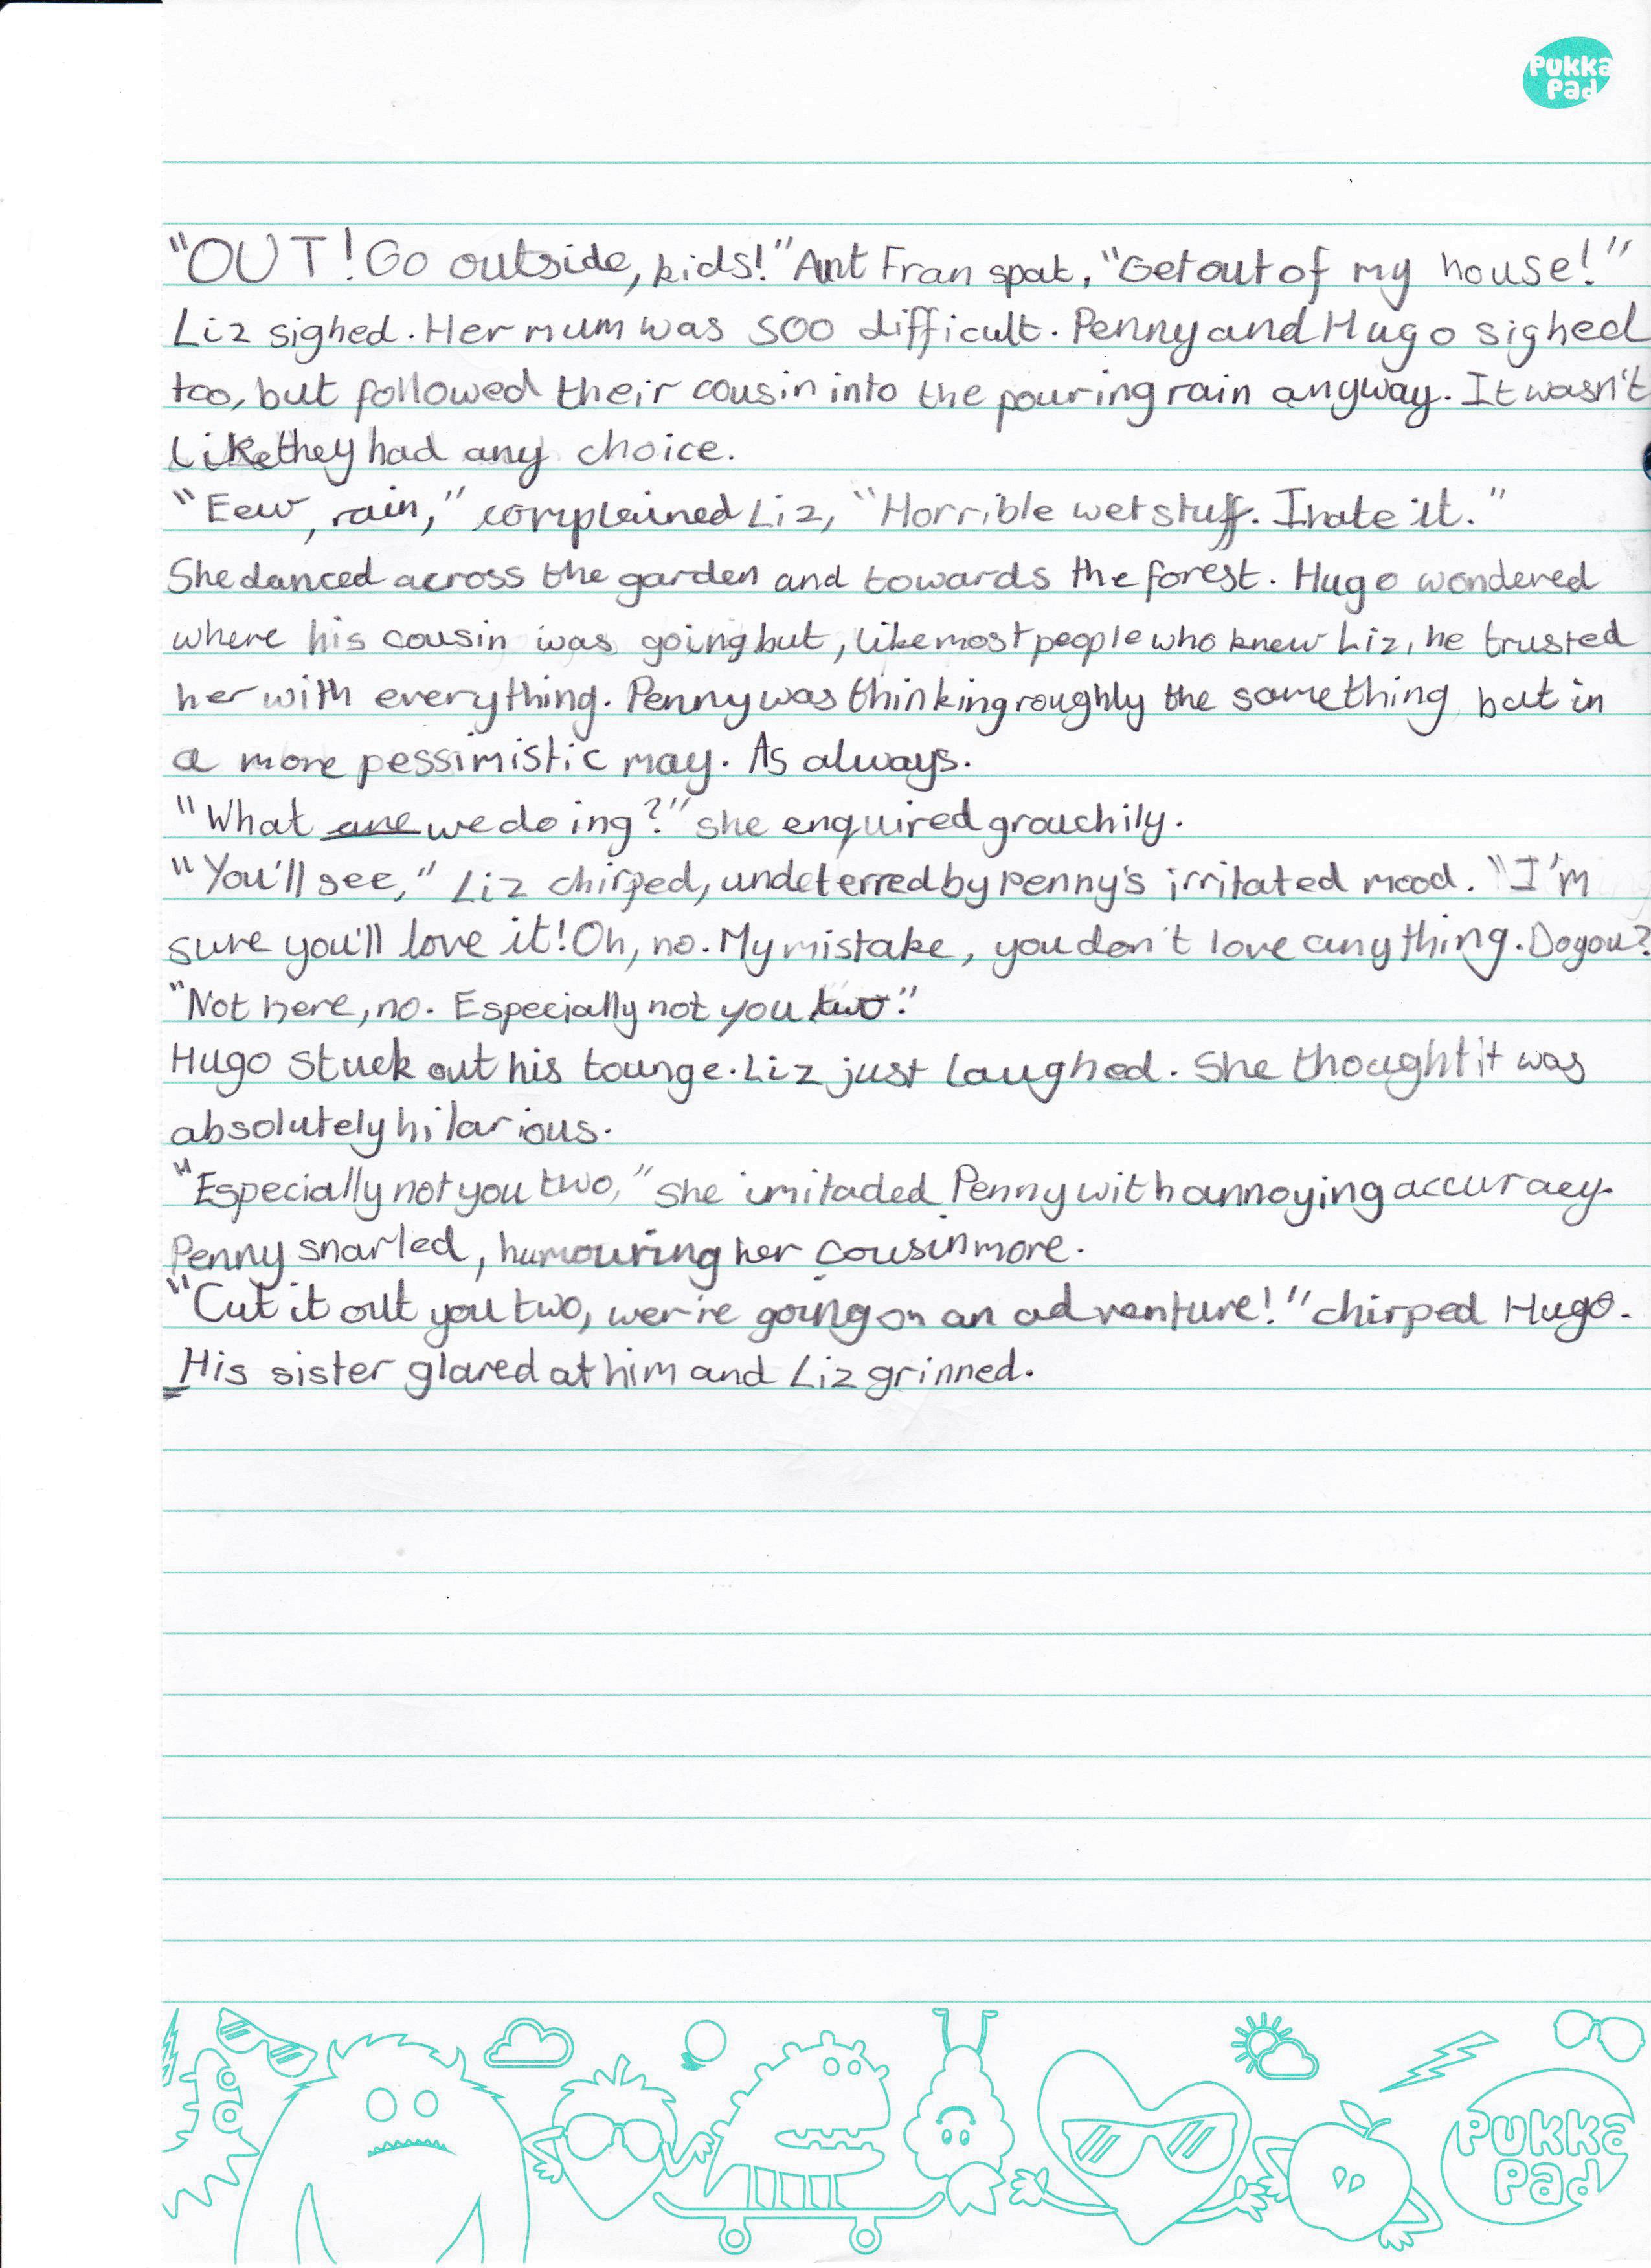 Pukka
Pad
"OUT! Go outside, kids!" Aunt Fran spat, "Get out of my house!"
Liz sighed. Her mum was soo difficult. Penny and Hugo sighed
too, but followed their cousin into the pouring rain anyway. It wasn't
like they had any choice.
"Eew, rain," complained Liz, "Horrible wet stuff. I hate it."
She danced across the garden and towards the forest. Hugo wondered
where his cousin was going but, like most people who knew Liz, he trusted
her with everything. Penny was thinking roughly the same thing but in
a more pessimistic may. As always.
"What are we doing?" she enquired grouchily.
"You'll see," Liz chirped, undeterred by Penny's irritated mood. "I'm
sure you'll love it! Oh, no. My mistake, you don't love anything. Do you?
"Not here, no. Especially not you two."
Hugo stuck out his tounge. Liz just laughed. She thought it was
absolutely hilarious.
"Especially not you two," she imitaded Penny with annoying accuracy.
Penny snarled, humouring her cousin more.
"Cut it out you two, wer're going on an adventure!" chirped Hugo.
His sister glared at him and Liz grinned.
Pukka
Pad